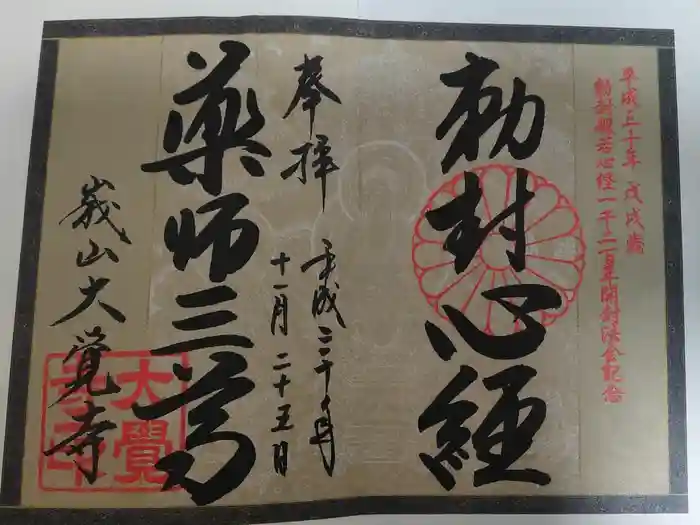 平成三十年 戊戌歳
勅封般若心経一千二百年開封法会記念
勅封心経
奉拝
平成三十年
十一月二十五日
薬師三尊
嵯山大覺寺
大覺
寺印